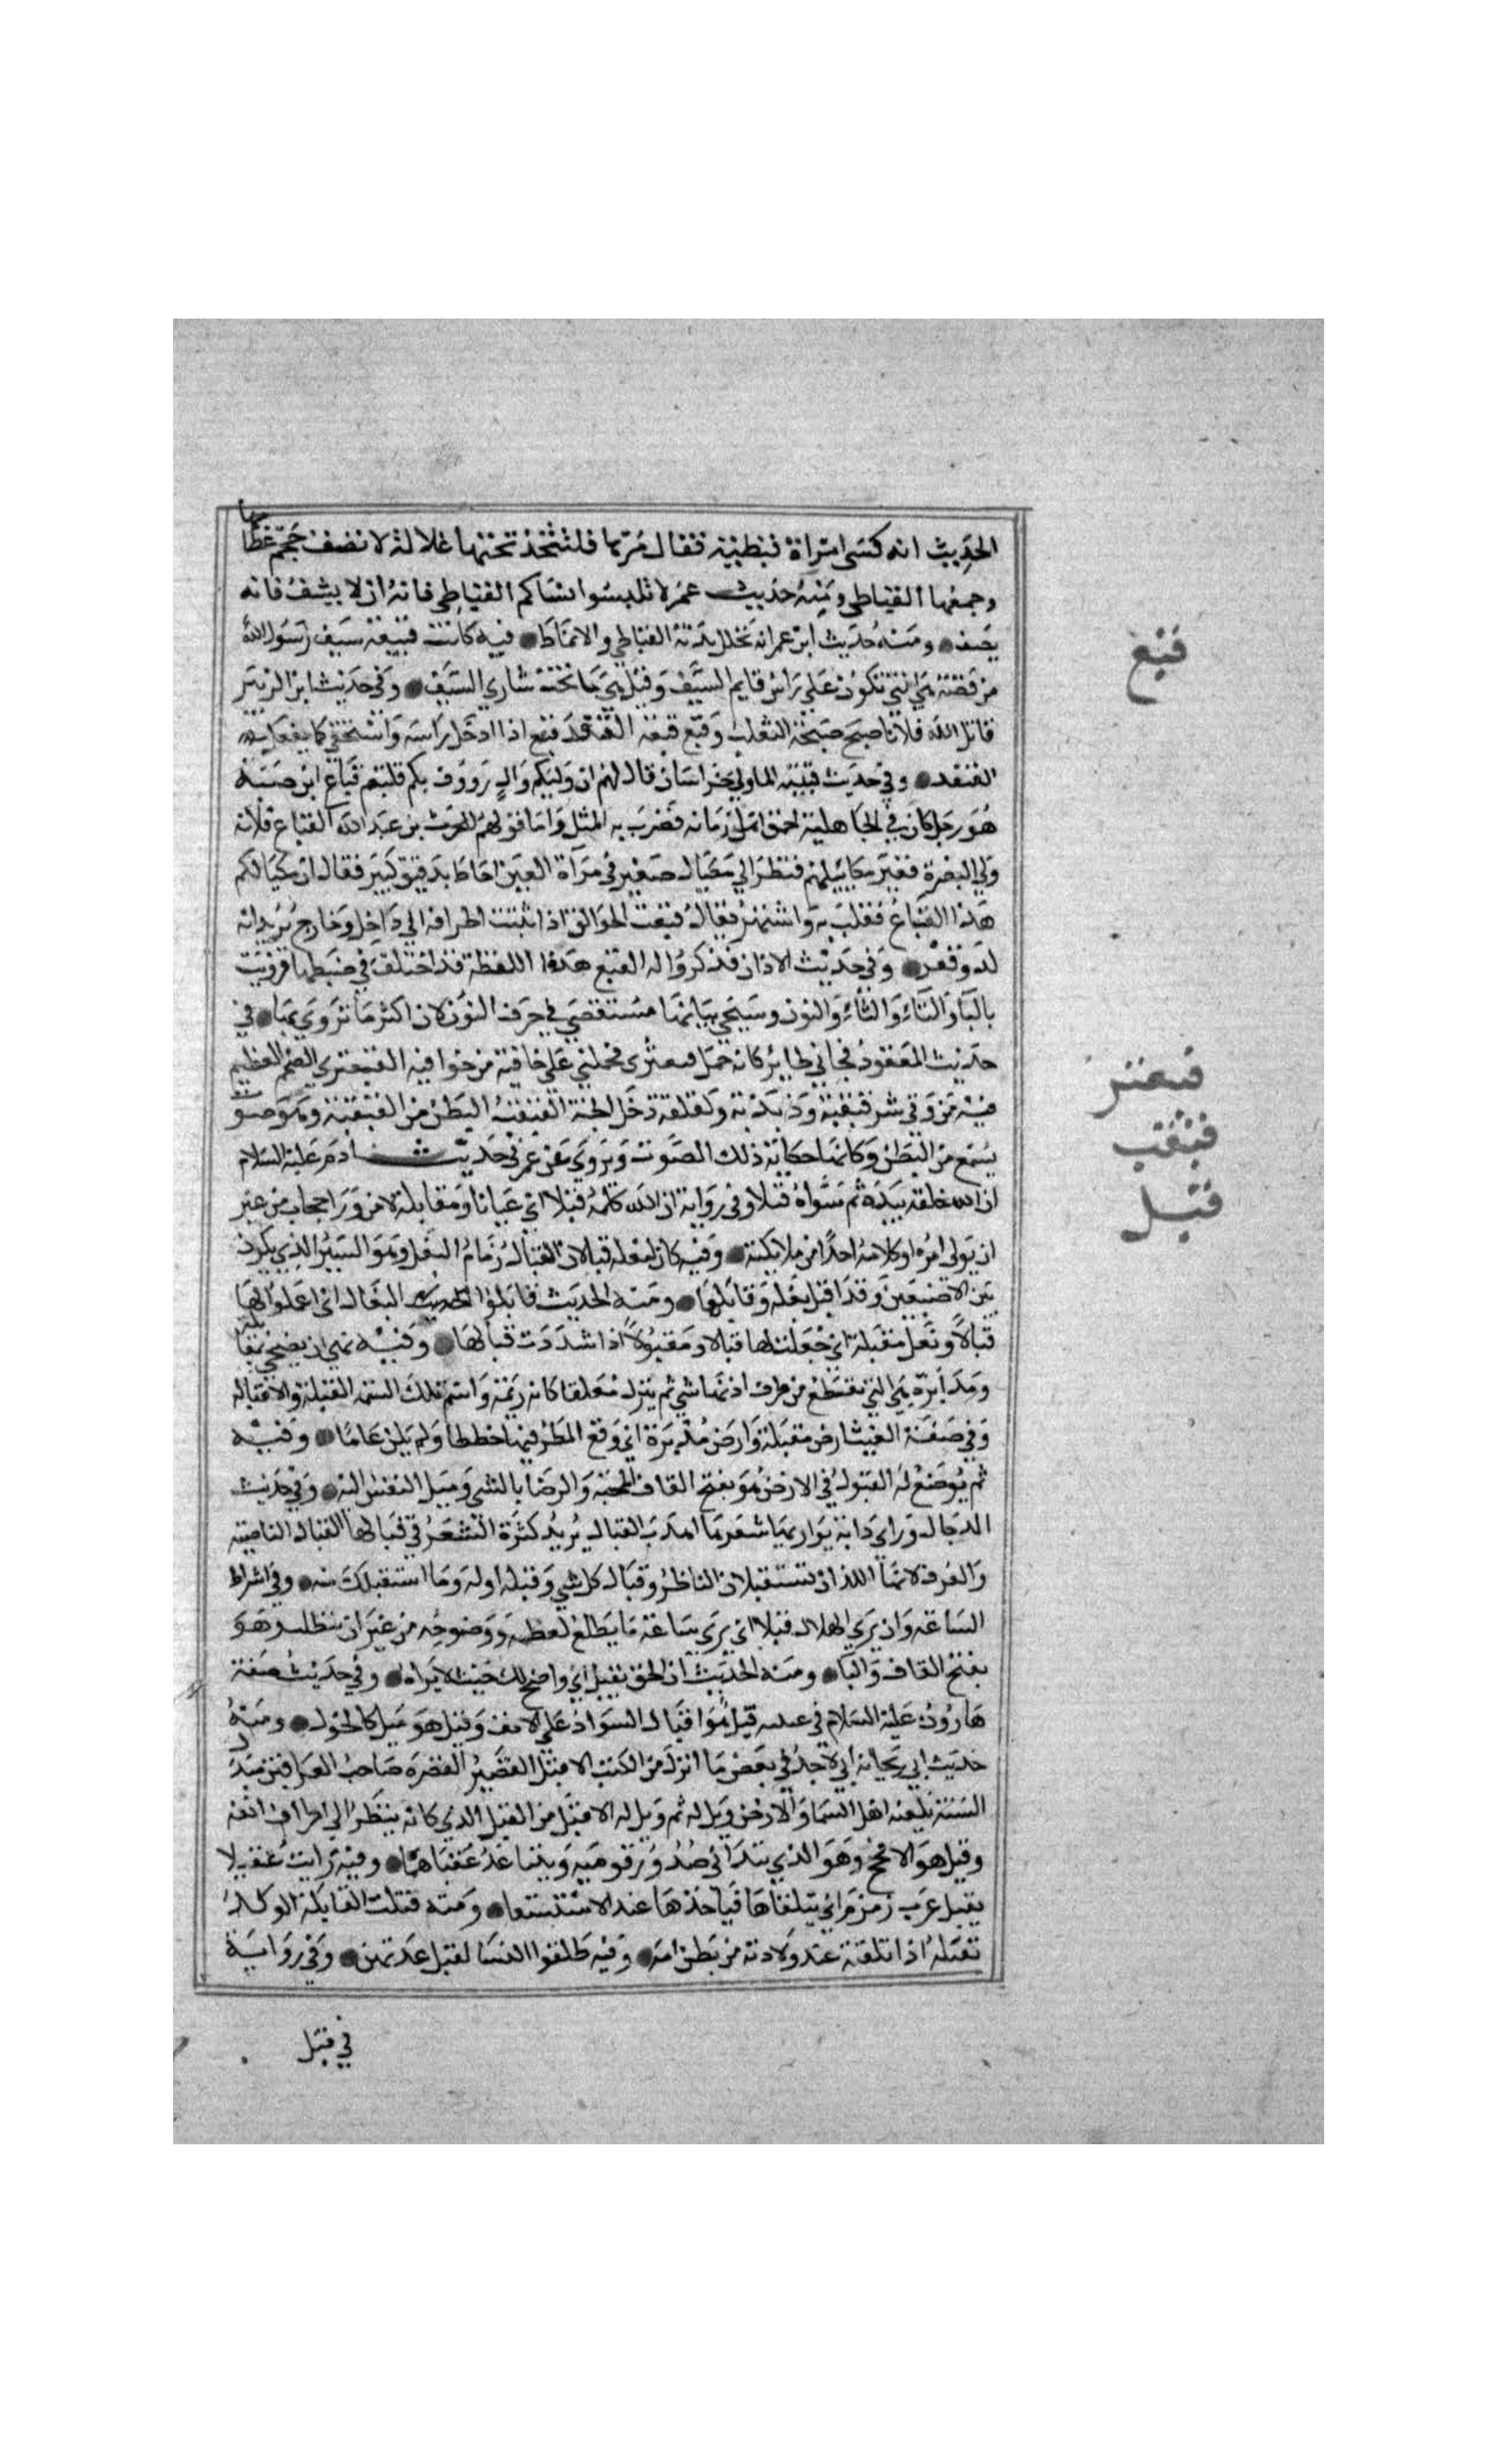 الحديث انه كسى امراة قبطية فقال مرها فلتتخذ تحتها غلالة لا تصف حجم عظامها
وجمعها القباطي ومنه حديث عمر لا تلبسوا نساكم القباطي فانه ان لا يشف فانه
يصف ومنه حديث ابن عمر انه تخلل بدنه القباطي والانماط فيه كانت قبيعة سيف رسول الله
من فضة هي التي تكون على راس قايم السيف وقيل هي ما تحت شاربي السيف وفي حديث ابن الزبير
قاتل الله فلانا صبح صبحة الثعلب وقبع قبعة القنفذ قبع اذا ادخل راسه واستخفى كما يفعل
القنفد وفي حديث قتيبة لما ولي خراسان قال لهم ان وليكم وال رووف بكم قلتم قباع ابن ضبة
هو رجل كان في الجاهلية احمق اهل زمانه فضرب به المثل واما قولهم للحرث بن عبد الله القباع فلانه
ولي البصرة فغير مكاييلهم فنظر الي مكيال صغير في مرآة العين احاط بدقيق كبير فقال ان مكيالكم
هذا القباع فغلب به واشتهر يقال قبعت الجوالق اذا ثنيت اطرافه الي داخل وخارج يريد انه
لذو قعر وفي حديث الاذان فذكروا له القبع هذه اللفظة قد اختلف في ضبطها فرويت
بالبا والتاء والثاء والنون وسيجي بيانها مستقصي في حرف النون لان اكثر ما تروي بها في
حديث المفقود فجاني طاير كانه جمل قبعثرى فحملني على خافية من خوافيه القبعثري الضخم العظيم
فيه من وقي شر قبقبه وذبذبه ولقلقه دخل الجنة القبقب البطن من القبقبة وهو صوت
يسمع من البطن وكانها حكاية ذلك الصوت ويروي عن عمر في حديث ادم عليه السلام
ان الله خلقه بيده ثم سواه قبلا وفي رواية ان الله كلمه قبلا اي عيانا ومقابلة لا من ورا حجاب من غير
ان يولى امره او كلامه احدا من ملايكته وفيه كان لنعله قبالان القبال زمام النعل وهو السير الذي يكون
بين الاصبعين وقد اقبل نعله وقابلها ومنه الحديث قابلوا النعال اي اعملوا لها
قبالا ونعل مقبلة اي جعلت لها قبالا ومقبولا اذا شددت قبالها وفيه نهي ان يضحي بمقابلة
ومدابرة هي التي تقطع من طرف اذنها شي ثم يترك معلقا كانه زنمة واسم تلك السمة القبلة والاقبالة
وفي صفة الغيث ارض مقبلة وارض مدبرة اي وقع المطر فيها خططا ولم يكن عاما وفيه
ثم يوضع له القبول في الارض هو بفتح القاف المحبة والرضا بالشي وميل النفس اليه وفي حديث
الدجال وراي دابة يواريها شعرها اهدب القبال يريد كثرة الشعر في قبالها القبال الناصية
والعرف لانهما اللذان تستقبلان الناظر وقبال كل شي وقبله اوله وما استقبلك منه وفي اشراط
الساعة وان يري الهلال قبلا اي يري ساعة ما يطلع لعظمه ووضوحه من غير ان يتطلب وهو
بفتح القاف والبا ومنه الحديث ان الحق بقبل اي واضح لك حيث لا يراه وفي حديث صفة
هارون عليه السلام في عينيه قبل هو اقبال السواد على الانف وقيل هو ميل كالحول ومنه
حديث ابي ريحانه اني لاجد في بعض ما انزل من الكتب الاقبل القصير القصرة صاحب العراقين مبدل
السنة يلعنه اهل السما والارض ويل له ثم ويل له الاقبل من القبل الذي كانه ينظر الي اطراف انفه
وقيل هو الافحج وهو الذي تتدانى صدور قدميه ويتباعد عقباهما وفيه رايت عقيلا
يقبل غرب زمزم اي يتلقاها فياخذها عند الاستسقا ومنه قبلت القابلة الولد
تقبله اذا تلقته عند ولادته من بطن امه وفيه طلقوا النسا لقبل عدتهن وفي رواية
في قبل
قبع
قبعثر
قبقب
قبل